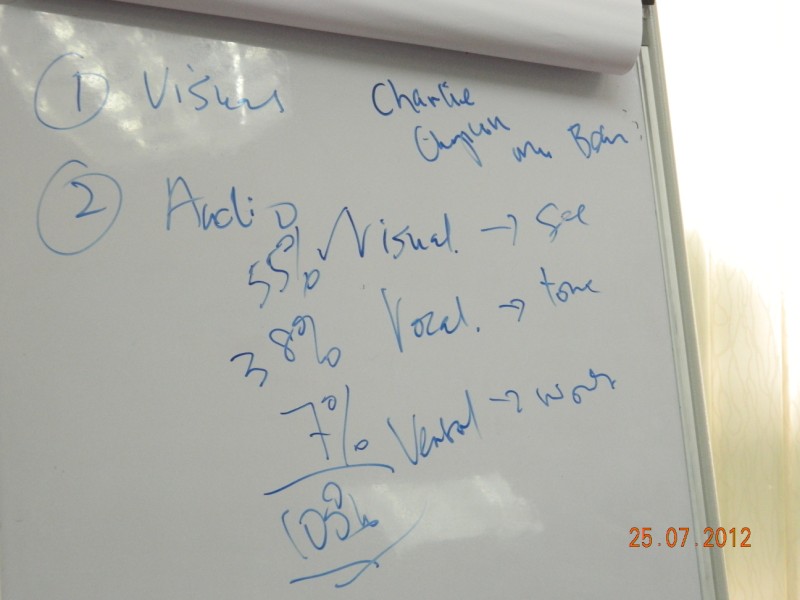 ① Visual
Charlie
Chaplin Mr. Bean
② Audio
55% Visual. → See
38% Vocal. → tone
7% Verbal → words
100%
25.07.2012